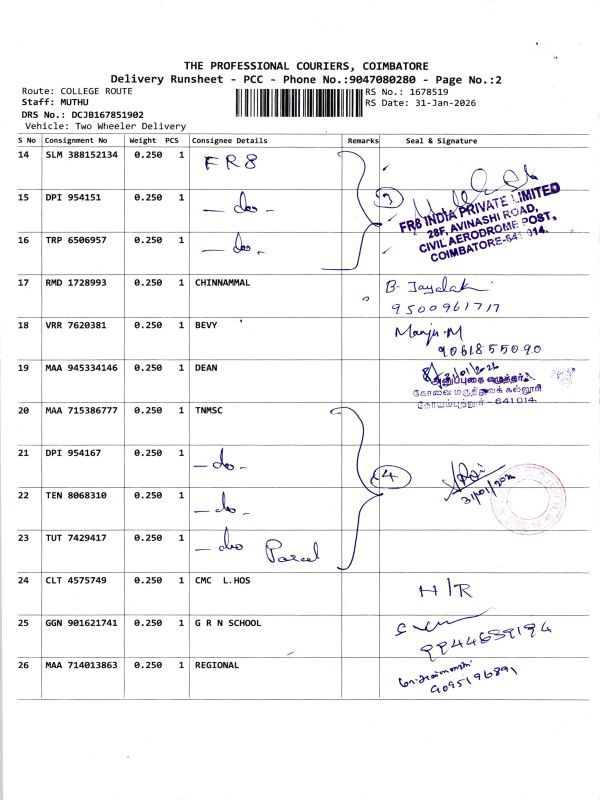 THE PROFESSIONAL COURIERS, COIMBATORE
Delivery Runsheet - PCC - Phone No.:9047080280 - Page No.:2
Route: COLLEGE ROUTE RS No.: 1678519
Staff: MUTHU RS Date: 31-Jan-2026
DRS No.: DCJB167851902
Vehicle: Two Wheeler Delivery
S No Consignment No Weight PCS Consignee Details Remarks Seal & Signature
14 SLM 388152134 0.250 1 FR8
15 DPI 954151 0.250 1 - do - 3
FR8 INDIA PRIVATE LIMITED
28F, AVINASHI ROAD,
CIVIL AERODROME POST,
COIMBATORE-641 014.
16 TRP 6506957 0.250 1 - do -
17 RMD 1728993 0.250 1 CHINNAMMAL B. Jayalak
9500961717
18 VRR 7620381 0.250 1 BEVY Manju M
9061855090
19 MAA 945334146 0.250 1 DEAN 31/01/2026
அனுப்புகை எழுத்தர்
கோவை மருத்துவக் கல்லூரி
கோயம்புத்தூர் - 641014.
20 MAA 715386777 0.250 1 TNMSC
21 DPI 954167 0.250 1 - do - 4
31/01/2026
22 TEN 8068310 0.250 1 - do -
23 TUT 7429417 0.250 1 - do Parcel
24 CLT 4575749 0.250 1 CMC L.HOS H/R
25 GGN 901621741 0.250 1 G R N SCHOOL
9944659194
26 MAA 714013863 0.250 1 REGIONAL